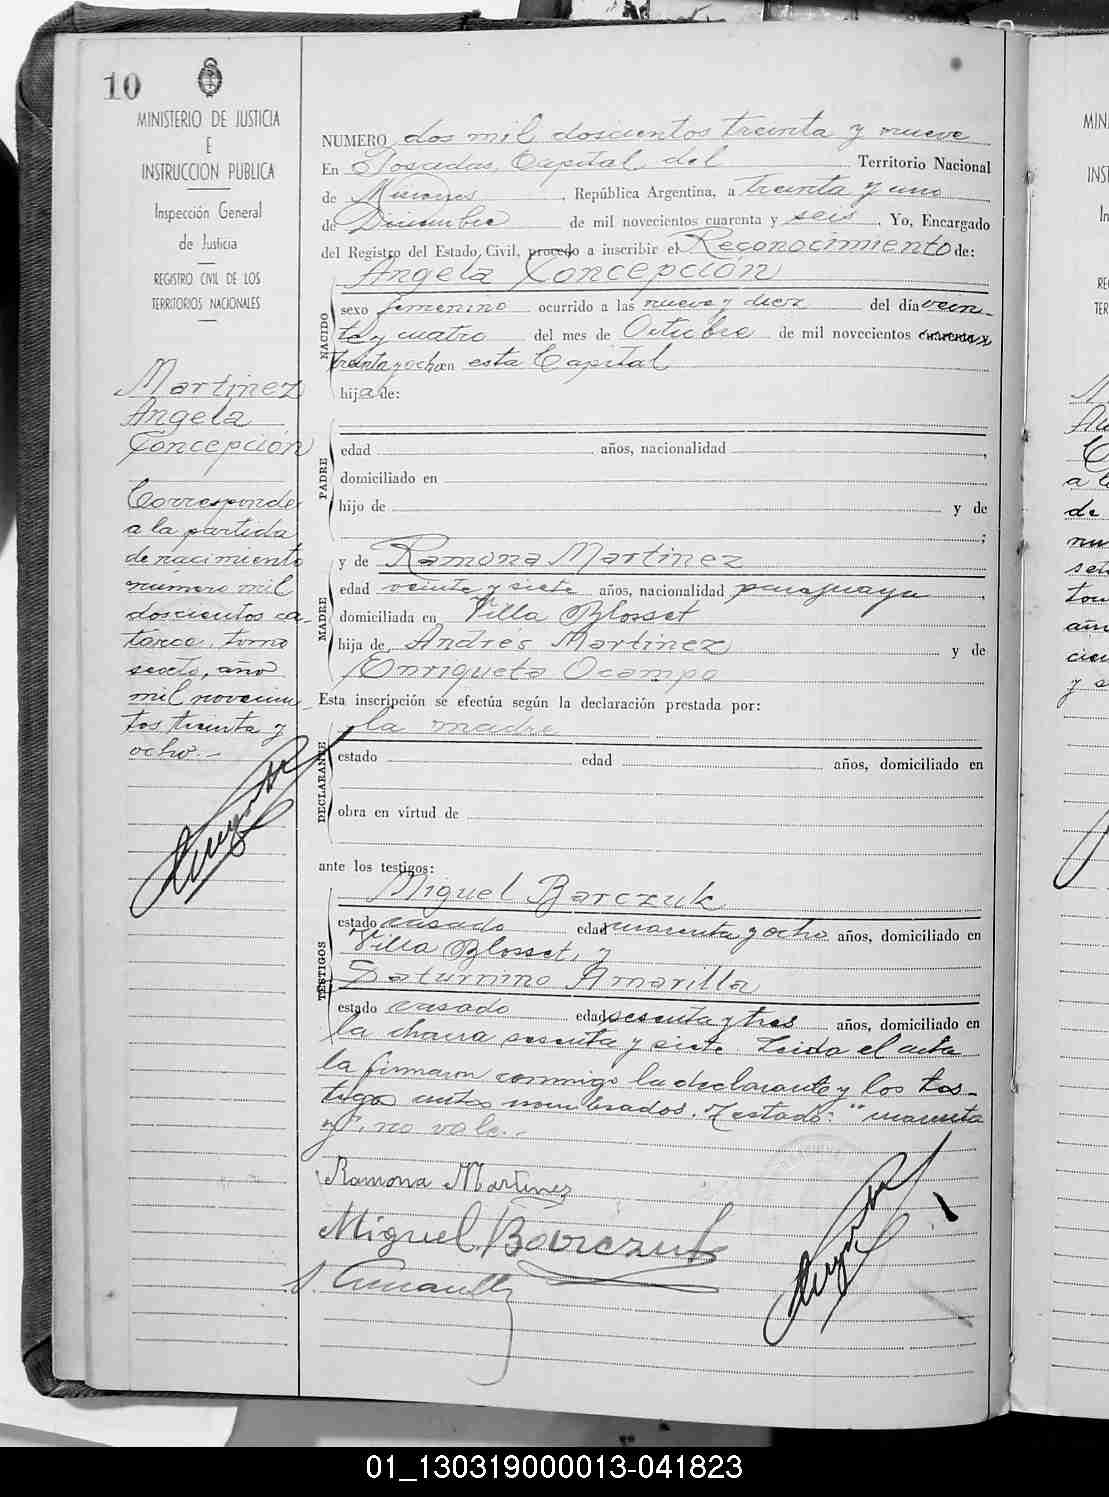 10
MINISTERIO DE JUSTICIA
E
INSTRUCCION PUBLICA
Inspección General
de Justicia
REGISTRO CIVIL DE LOS
TERRITORIOS NACIONALES
Martinez
Angela
Concepción
Corresponde
a la partida
de nacimiento
número mil
doscientos ca-
torce, tomo
sexto, año
mil novecien-
tos treinta y
ocho.-
NUMERO dos mil doscientos treinta y nueve
En Posadas, Capital del Territorio Nacional
de Misiones, República Argentina, a treinta y uno
de Diciembre de mil novecientos cuarenta y seis. Yo, Encargado
del Registro del Estado Civil, procedo a inscribir el Reconocimiento de:
Angela Concepción
NACIDO
sexo femenino ocurrido a las nueve y diez del día vein-
te y cuatro del mes de Octubre de mil novecientos cuarenta y
treinta y ocho en esta Capital
hija de:
PADRE
edad años, nacionalidad ,
domiciliado en
hijo de y de
;
y de Ramona Martinez
MADRE
edad veinte y siete años, nacionalidad paraguaya ,
domiciliada en Villa Blosset
hija de Andrés Martinez y de
Enriqueta Ocampo
Esta inscripción se efectúa según la declaración prestada por:
la madre
DECLARANTE
estado edad años, domiciliado en
obra en virtud de
ante los testigos:
Miguel Barczuk
TESTIGOS
estado casado edad cuarenta y ocho años, domiciliado en
Villa Blosset, y
Saturnino Amarilla
estado casado edad sesenta y tres años, domiciliado en
la chacra sesenta y siete. Leida el acta
la firmaron conmigo la declarante y los tes-
tigos antes nombrados. Testado: "cuarenta
y", no vale.-
Ramona Martinez
Miguel Barczuk
MIN
INST
In
RE
TER
a la
de
01_130319000013-041823